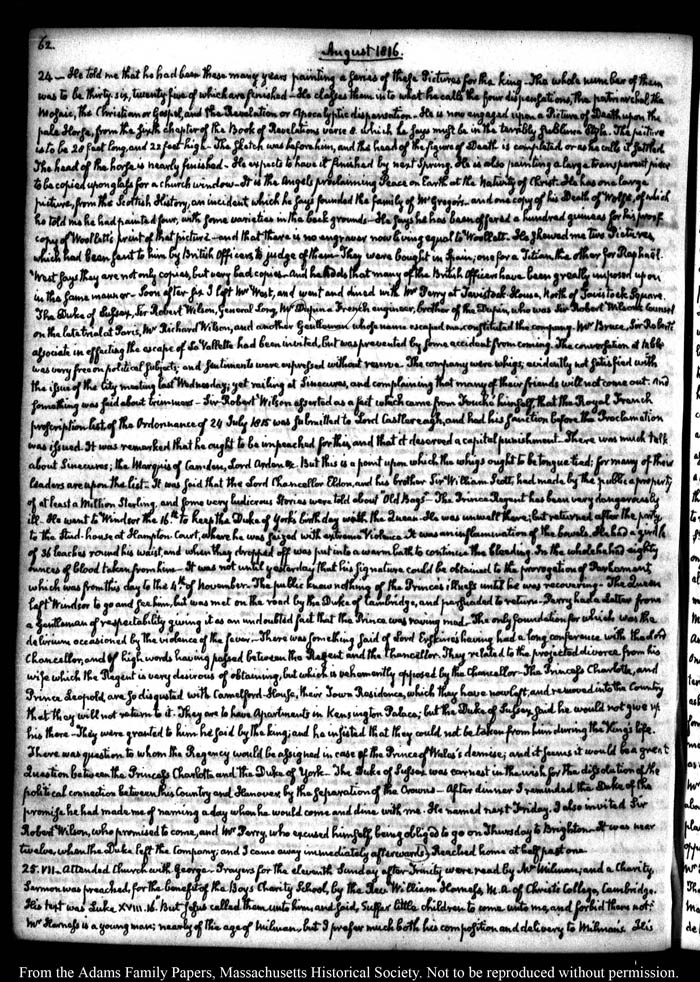 62.
August 1816.
24 — He told me that he had been these many years painting a series of these Pictures for the king — The whole number of them
was to be thirty six, twenty five of which are finished — He classes them into what he calls the four dispensations, the patriarchal, the
Mosaic, the Christian or Gospel, and the Revelation or Apocalyptic dispensation — He is now engaged upon a Picture of Death upon the
pale Horse, from the sixth chapter of the Book of Revelations verse 8. which he says must be in the terribly sublime style. The picture
is to be 20 feet long, and 22 feet high — The Sketch was before him, and the head of the figure of Death is completed or as he calls it settled
The head of the horse is nearly finished — He expects to have it finished by next Spring. He is also painting a large transparent piece
to be copied upon glass for a church window — It is the Angels proclaiming Peace on Earth at the Nativity of Christ. He has one large
picture, from the Scottish History, an incident which he says founded the family of McGregor — and one copy of his Death of Wolfe, of which
he told me he had painted four, with some varieties in the back grounds — He says he has been offered a hundred guineas for his proof
copy of Woollett's print of that picture — and that there is no engraver now living equal to Woollett. He shewed me two Pictures
which had been sent to him by British Officers to judge of them — They were bought in Spain, one for a Titian the other for Raphaël.
West says they are not only copies, but very bad copies — And he adds that many of the British Officers have been greatly imposed upon
in the same manner — Soon after six I left Mr West, and went and dined with Mr Perry at Tavistock House, North of Tavistock Square.
The Duke of Sussex, Sir Robert Wilson, General Long, Mr Dupin a French engineer, brother of the Dupin, who was Sir Robert Wilson's Counsel
on the late trial at Paris, Mr Richard Wilson, and another Gentleman whose name escaped me constituted the company. Mr Bruce, Sir Robert's
associate in effecting the escape of La Vallette had been invited, but was prevented by some accident from coming. The conversation at table
was very free on political subjects; and sentiments were expressed without reserve. The company were whigs; evidently not satisfied with
the issue of the city meeting last Wednesday; yet railing at Sinecures, and complaining that many of their friends will not come out. And
something was said about trimmers — Sir Robert Wilson asserted as a fact which came from Fouché himself, that the Royal French
proscription list of the Ordonnance of 24 July 1815 was submitted to Lord Castlereagh, and had his sanction before the Proclamation
was issued. It was remarked that he ought to be impeached for this, and that it deserved a capital punishment. There was much talk
about Sinecures; the Marquis of Camden, Lord Arden &c. But this is a point upon which the whigs ought to be tongue tied; for many of their
leaders are upon the list. It was said that the Lord Chancellor Eldon, and his brother Sir William Scott, had made by the public a property
of at least a Million Sterling, and some very ludicrous stories were told about Old Bags — The Prince Regent has been very dangerously
ill. He went to Windsor the 16th to keep the Duke of York's birth day with the Queen. He was unwell there; but returned after the party
to the Stud-house at Hampton Court, where he was seized with extreme violence. It was an inflammation of the bowels. He had a girdle
of 36 leaches round his waist, and when they dropped off was put into a warm bath to continue the bleeding. In the whole he had eighty
ounces of blood taken from him — It was not until yesterday that his signature could be obtained to the prorogation of Parliament
which was from this day to the 4th of November — The public knew nothing of the Princes illness until he was recovering — The Queen
left Windsor to go and see him, but was met on the road by the Duke of Cambridge, and persuaded to return. Perry had a letter from
a gentleman of respectability giving it as an undoubted fact that the Prince was raving mad. The only foundation for which was the
delirium occasioned by the violence of the fever — There was something said of Lord Erskine's having had a long conference with the Lord
Chancellor, and of high words having passed between the Regent and the Chancellor. They related to the projected divorce from his
wife which the Regent is very desirous of obtaining, but which is vehemently opposed by the Chancellor — The Princess Charlotte, and
Prince Leopold, are so disgusted with Camelford-House, their Town Residence, which they have now left, and removed into the Country
that they will not return to it. They are to have Apartments in Kensington Palace; but the Duke of Sussex said he would not give up
his there — They were granted to him he said by the king; and he insisted that they could not be taken from him during the King's life.
There was question to whom the Regency would be assigned in case of the Prince of Wales's demise; and it seems it would be a great
Question between the Princess Charlotte and the Duke of York — The Duke of Sussex was earnest in the wish for the dissolution of the
political connection between this Country and Hanover by the separation of the Crowns — After dinner I reminded the Duke of the
promise he had made me of naming a day when he would come and dine with me. He named next Friday. I also invited Sir
Robert Wilson, who promised to come, and Mr Perry, who excused himself, being obliged to go on Thursday to Brighton. It was near
twelve, when the Duke left the Company; and I came away immediately afterwards. Reached home at half past one.
25. VII. Attended Church with George. Prayers for the eleventh Sunday after Trinity were read by Mr Milman; and a Charity
Sermon was preached, for the benefit of the Boys Charity School, by the Revd William Harness, M.A. of Christ's College, Cambridge.
His text was Luke XVIII. 16. But Jesus called them unto him, and said, Suffer little children to come unto me, and forbid them not.
Mr Harness is a young man; nearly of the age of Milman, but I prefer much both his composition and delivery to Milman's. His
From the Adams Family Papers, Massachusetts Historical Society. Not to be reproduced without permission.